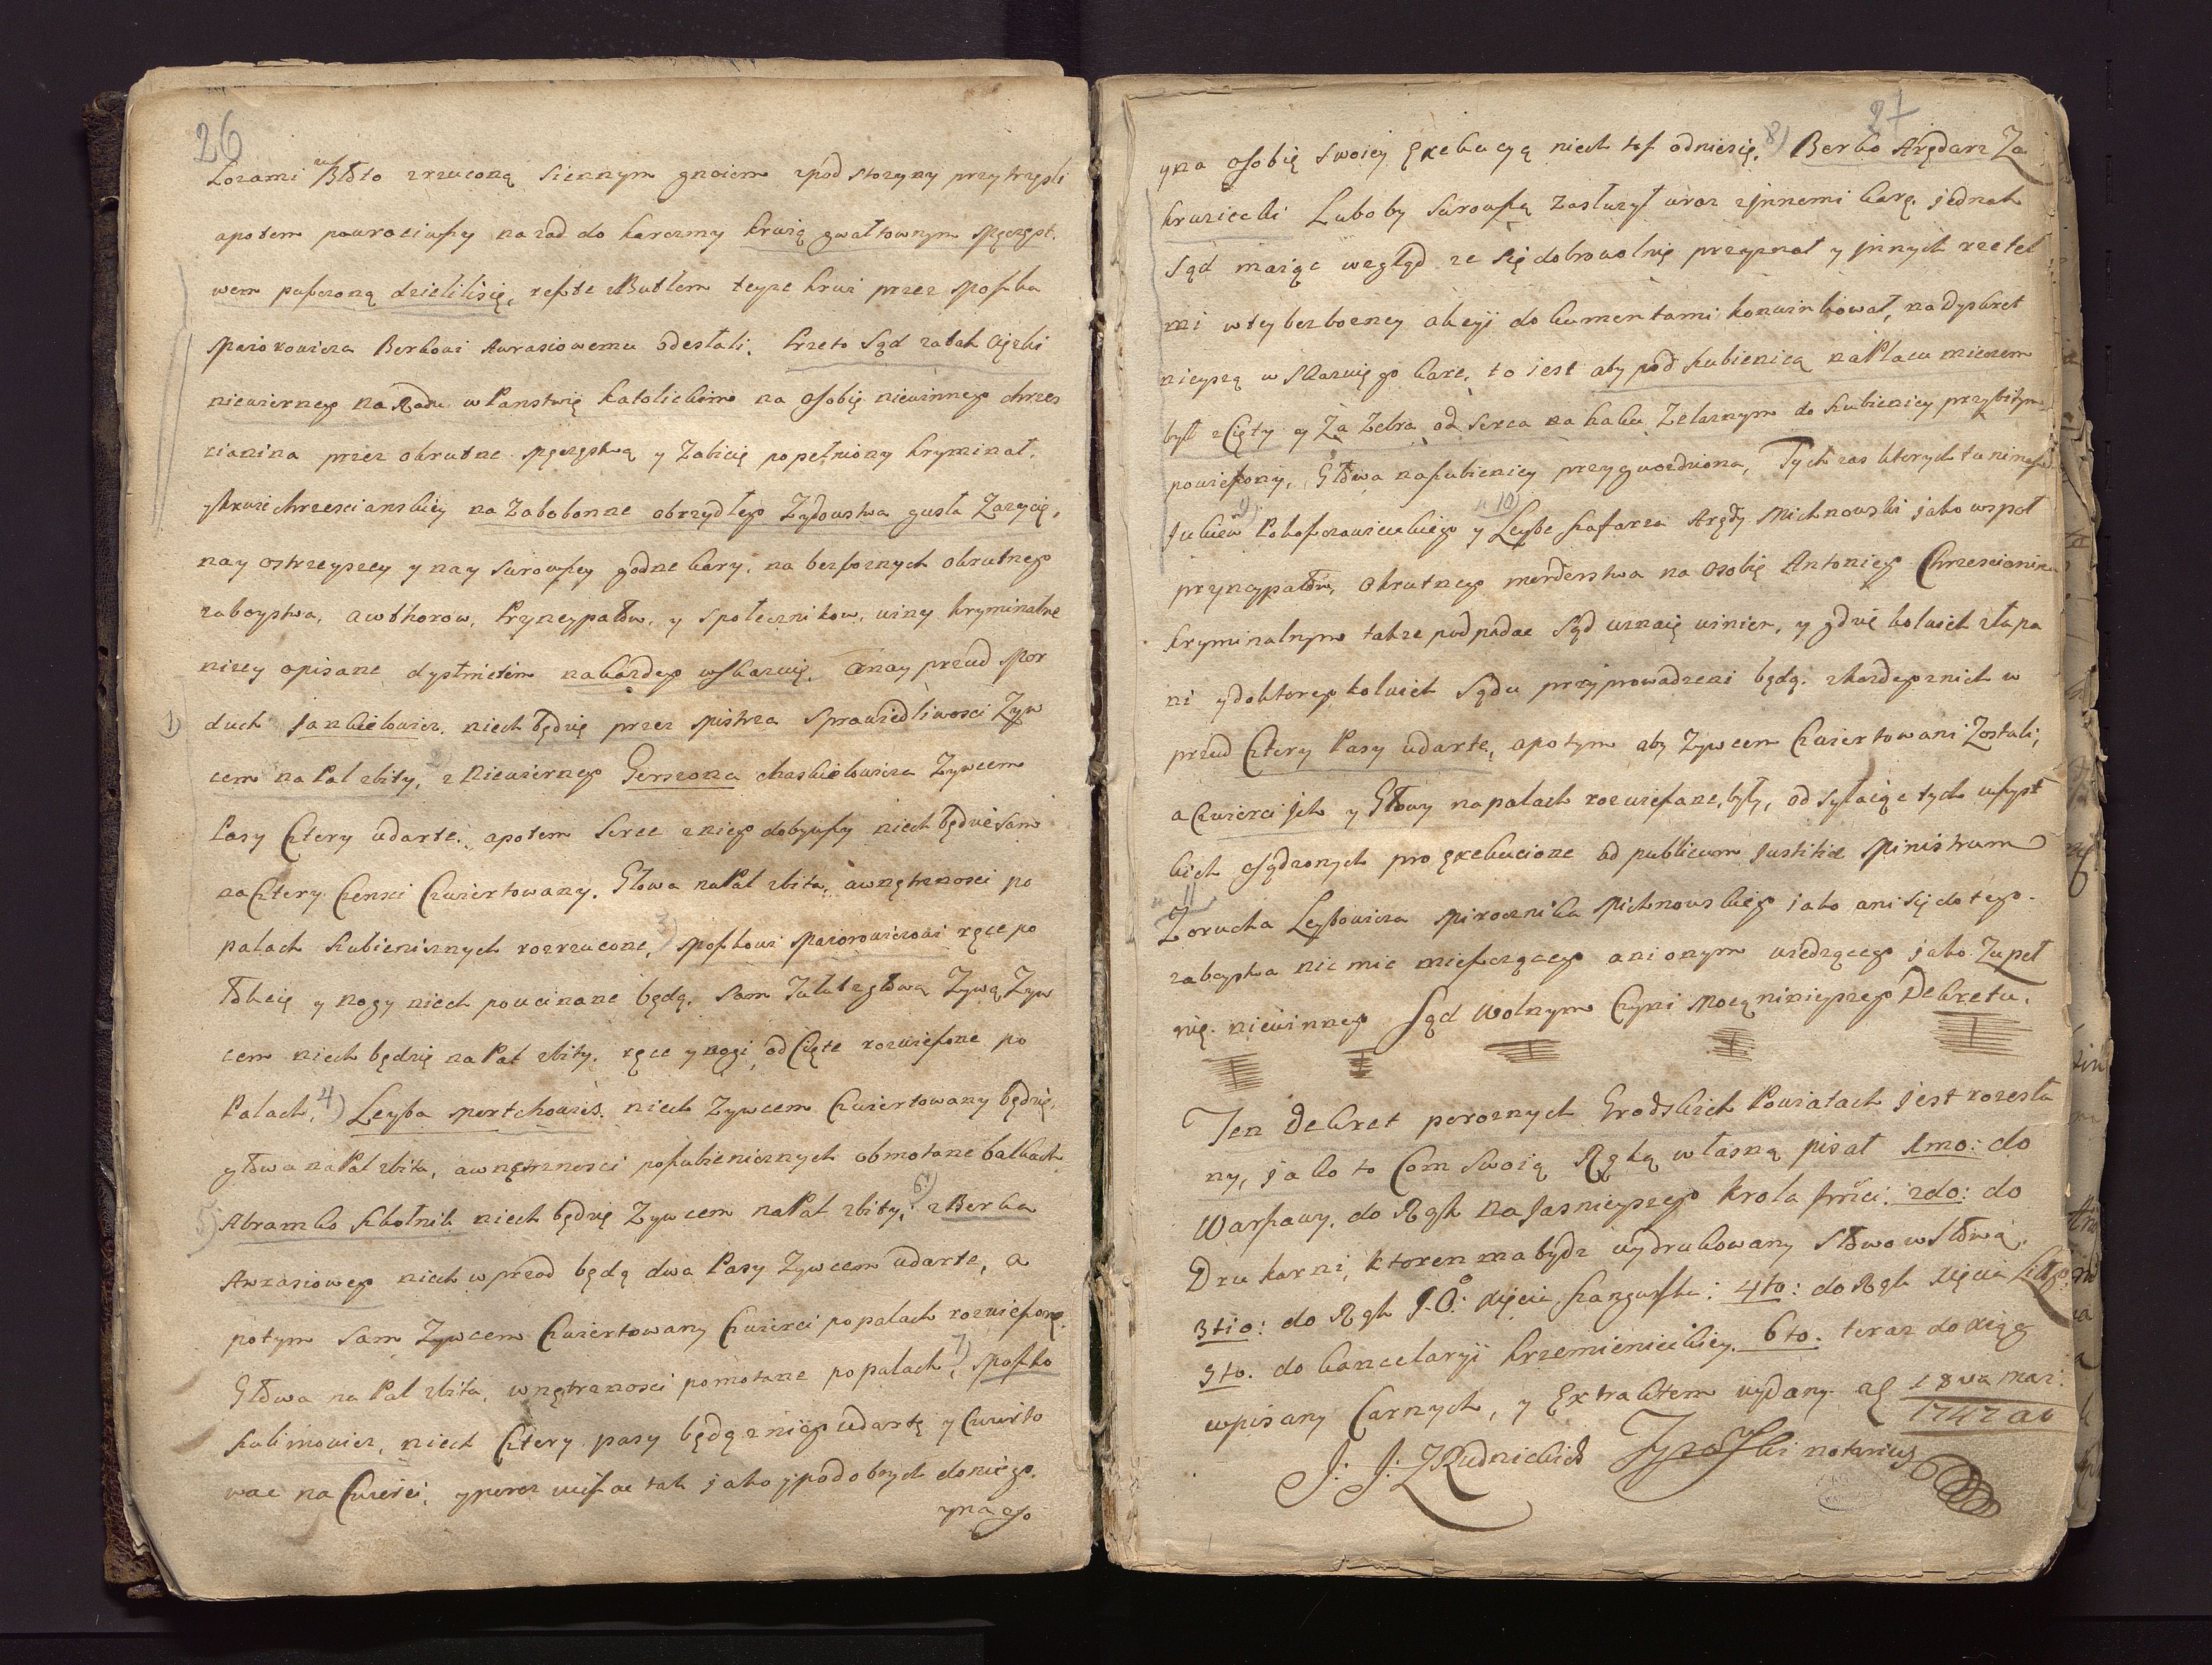 26
Łozami w Błoto zrzuconą siennym gnoiem zpod stozyny przytrzęsli
apotem powrociwszy nazad do karczmy krwią gwałtownym męczęst.
wem puszczoną dzielilisię, resztę z Butlem teyze krwi przez Moszka
Maiorowicza Berkowi Awrasiowemu odesłali. Przeto Sąd zatak ciężki
niewiernego Narodu w Panstwię Katolickim na osobię niewinnego chrzes
cianina przez okrutne męczęstwą y Zabicię popełniony kryminał,
y krwie chrzescianskiey na Zabobonne obrzydłego Zydowstwa gusła Zazycię,
nay ostrzeyszey y nay surowszey godne kary, na bezbożnych okrutnego
zaboystwa, awthorow, Pryncypałow, y społecznikow, winy kryminalne
nizey opisane dystinctim nakazdego wskazuię. Anay przud Mor
1) duch Jankielowicz niech będzię przez Mistrza Sprawiedliwosci Zyw
cem na Pal zbity, 2) z Niewiernego Gerszona Chaskielowicza Zywcem
Pasy Cztery udarte, apotem serce zniego dobywszy niech będzie sam
na Cztery Częsci Cwiertowany. Głowa na Pal zbita, awnętrznosci po
palach szubienicznych rozrzucone, 3) Moszkowi Maiorowiczowi ręce po
łokcię y nogy niech poucinane będą, sam Tułub z głową Zywą Zyw
cem niech będzię na Pal zbity, ręce y nogi, od Cięte rozwieszone po
Palach, 4) Leyba Mortchowicz niech Zywcem Cwiertowany będzię,
głowa na Pal zbita, awnętrznosci poszubienicznych obmotane balkach
5) Abramko Szkolnik niech będzię Zywcem na Pal zbity, 6) z Berka
Awrasiowego niech w przod będą dwa Pasy Zywcem udarte, a
potym sam Zywcem Cwiertowany Cwierci po palach rozwieszone,
Głowa na Pal zbita, wnętrznosci pomotane po palach, 7) Moszko
Szulimowicz, niech Cztery pasy będą z niego udartę y Cwierto
wac na Cwierci, y poroz wieszac tak iako y podobnych do niego,
yna oso
27
yna osobię swoiey Exekucyą niech tesz odniesię, 8) Berko Arędarz Za
kruziecki Luboby surowszą zasłużył wraz z Jnnemi karę, jednak
Sąd maiąc wzgląd ze się dobrowolnię przyznał y Jnnych rzetel
mi w tey bezbozney akcyi dokumentami konwinkował, na dyskret
nieyszą wskazuię go karę, to iest aby pod szubienicą na Placu mieczem
był scięty y Za Zebra od serca na haku Zelaznym do szubienicy przybitym
powieszony, Głowa na szubienicy przygwozdzona, Tych zas ktorych tu nimasz
9) y 10) Leybę Szafarza Arędy Michnowski jako wspoł
pryncypałow, okrutnego morderstwa na osobię Antoniego Chrzescianina
kryminalnym takze podpadac Sąd uznaię winien, y gdzie kolwiek złapa
ni y do ktorego kolwiek Sądu przyprowadzeni będą, z kozdego znich w
przud Cztery Pasy udarte, apotym aby Zywcem Cwiertowani Zostali,
a Cwierci jch y Głowy na palach rozwieszane, były, odsyłaiąc tych wszyst
kich osądzonych pro Exekucione ad publicum Justitiæ Ministrum
11 Zorucha Leybowicza Mirocznika Michnowskiego iako ani się do tego.
zaboystwa nic nie mieszaącego ani onym wiedzącego iako Zupeł
nię niewinnego Sąd Wolnym Czyni mocą ninieyszego Dekretu.
Ten Dekret poroznych Grodskich Powiatach jest rozesła
ny, iako to Com swoią Ręką własną pisał 1mo: do
Warszawy, do Rąk Najasnieyszego Krola Jmści. 2do: do
Drukarni, ktoren ma bydz wydrukowany słowo w słowo,
3tio: do Rąk J:O: Xięcia Sanguszka: 4to: do Rąk Xięcia
5to. do kancelaryi Krzemienieckiey. 6to. teraz do xiąg
wpisany Czarnych, y Extraktem wydany 18va mar:
1747 ao
J: J: Z Rudnickich notarius